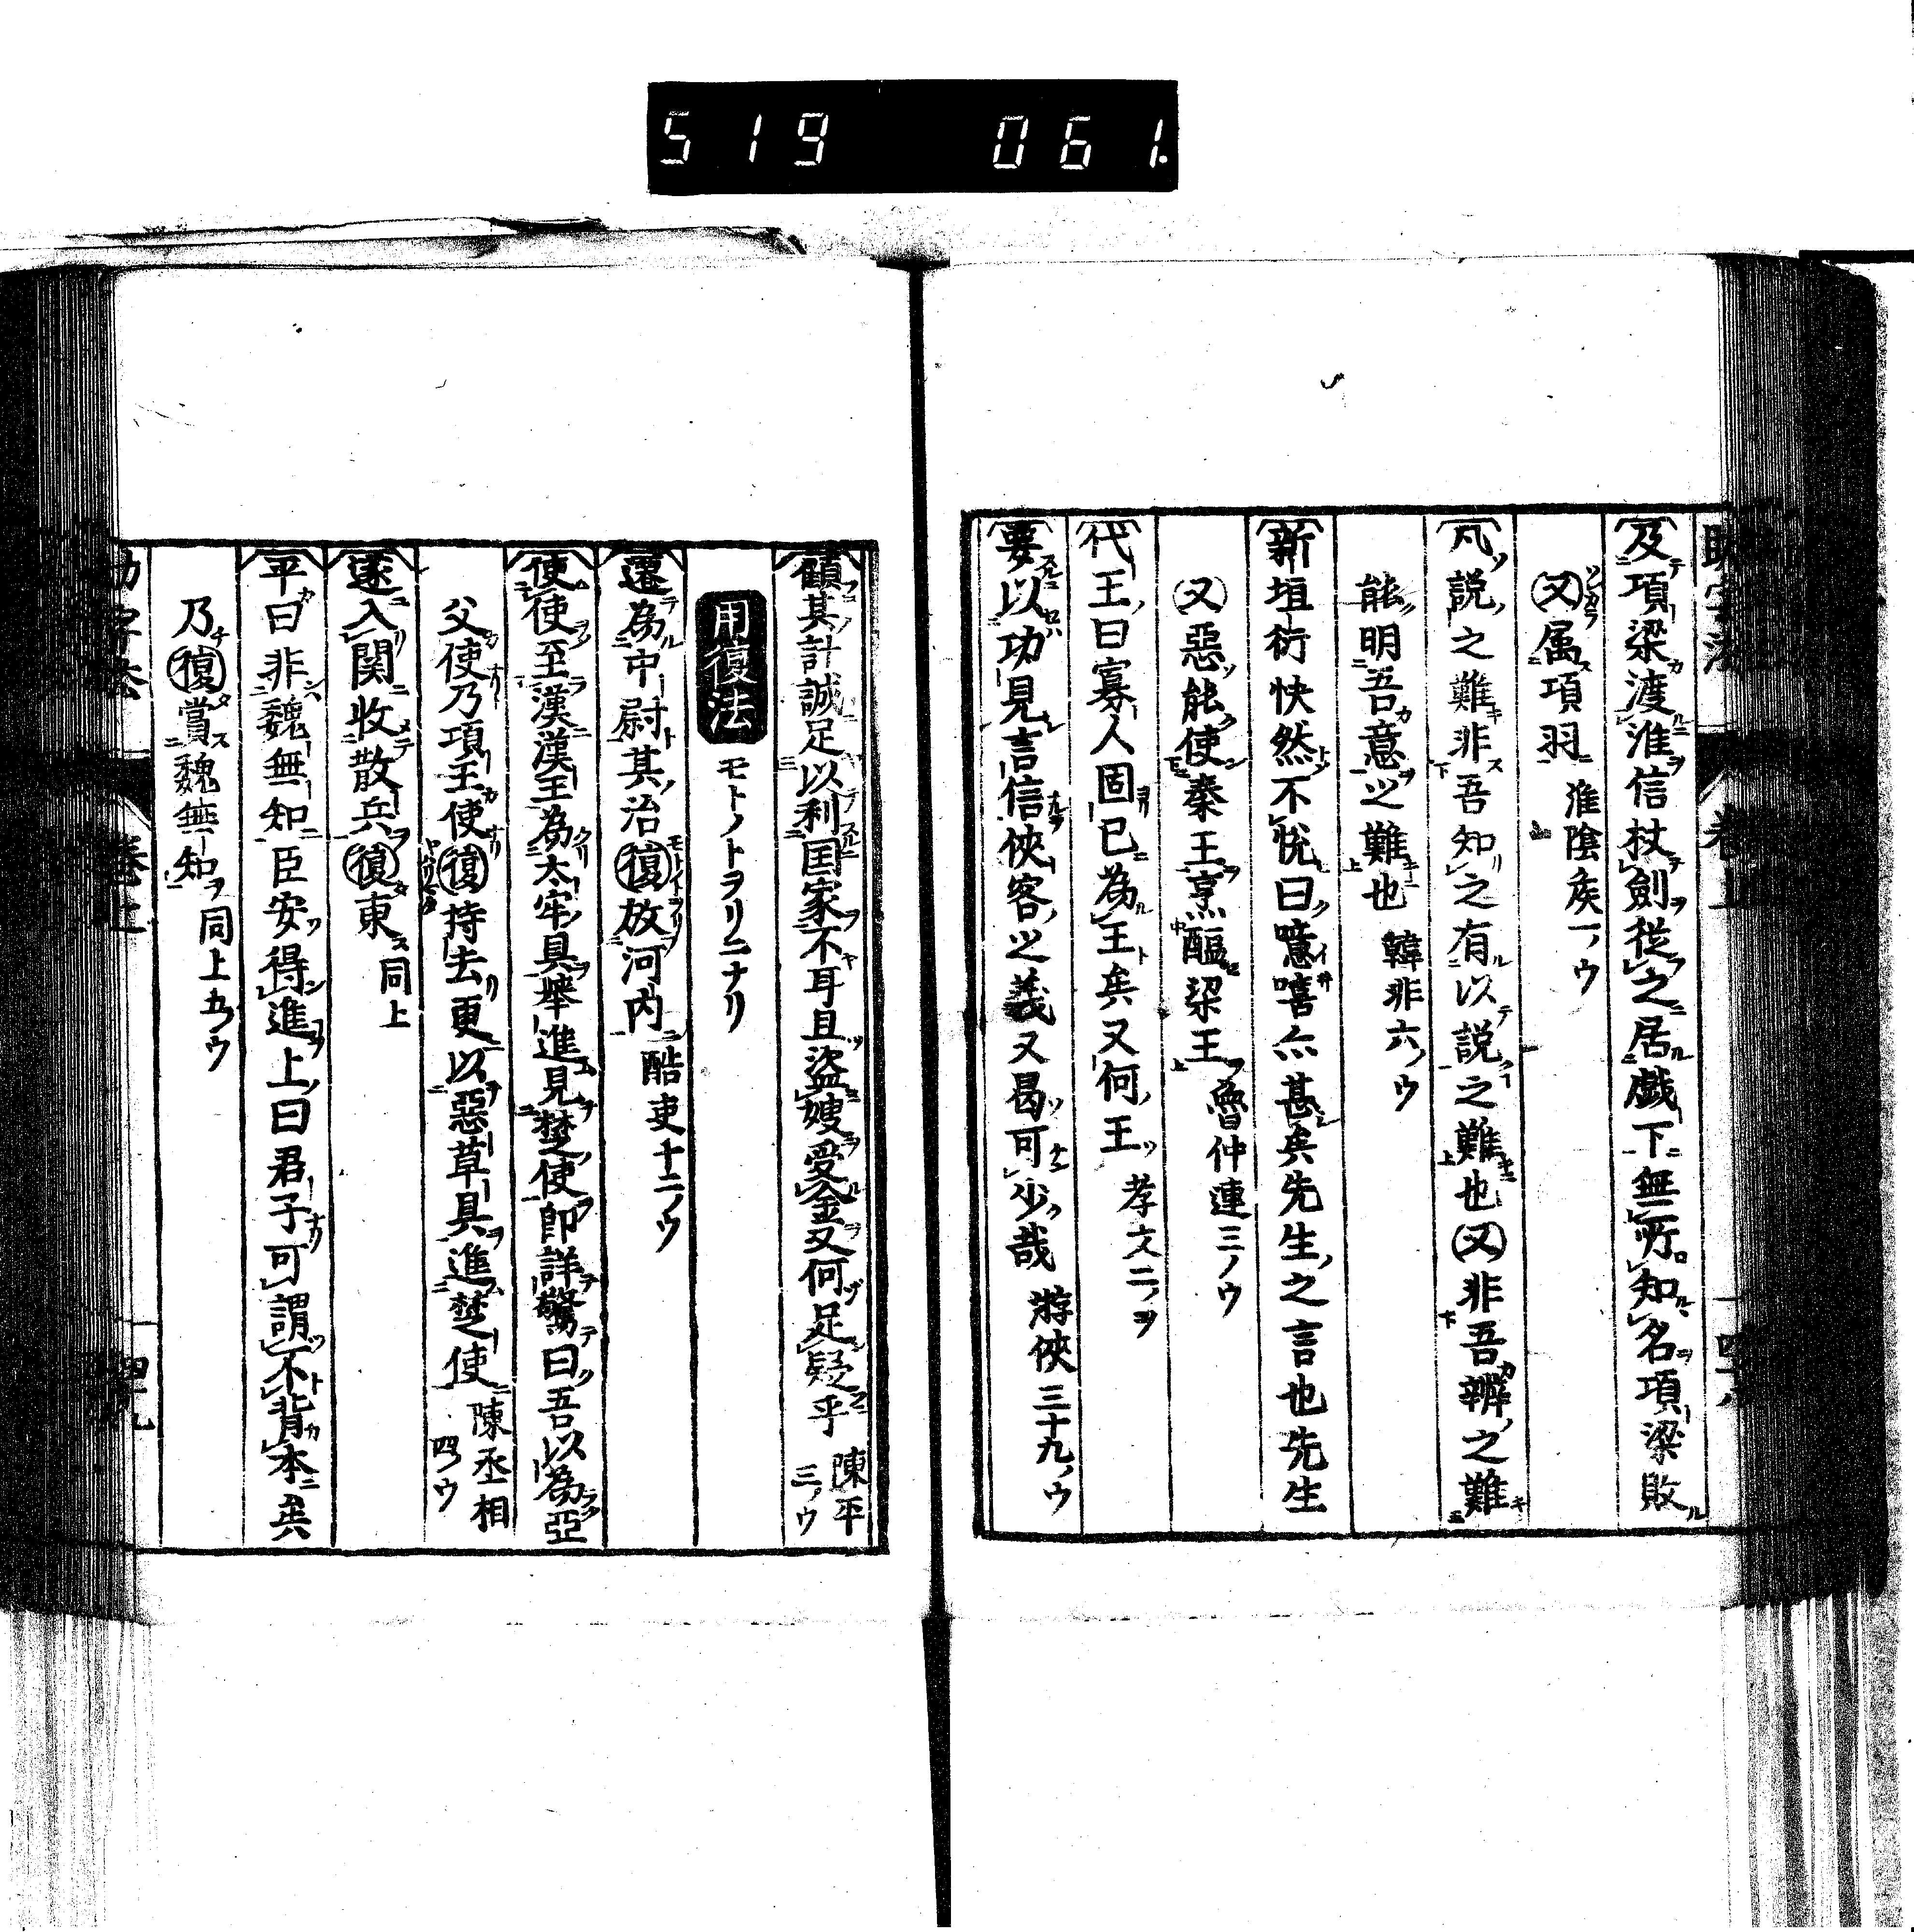 519 061.
及項梁渡淮信杖劍從之居戲下無所知名項梁敗
又属項羽 淮陰矦一ノウ
凡說之難非吾知之有以說之難也又非吾辨之難
能明吾意之難也 韓非六ノウ
新垣衍怏然不悅曰噫嘻亦甚矣先生之言也先生
又惡能使秦王烹醢梁王 魯仲連三ノウ
代王曰寡人固已為王矣又何王 孝文二ノヲ
要以功見言信俠客之義又曷可少哉 游俠三十九ノウ
顧其計誠足以利囯家不耳且盗嫂受金又何足疑乎 陳平三ノウ
用復法 モトノトヲリニナリ
遷為中尉其治復放河内 酷吏十二ノウ
使使至漢漢王為太牢具舉進見楚使即詳驚曰吾以為亞
父使乃項王使復持去更以惡草具進楚使 陳丞相四ノウ
遂入関收散兵復東 同上
平曰非魏無知臣安得進上曰君子可謂不背本矣
乃復賞魏無知 同上五ノウ